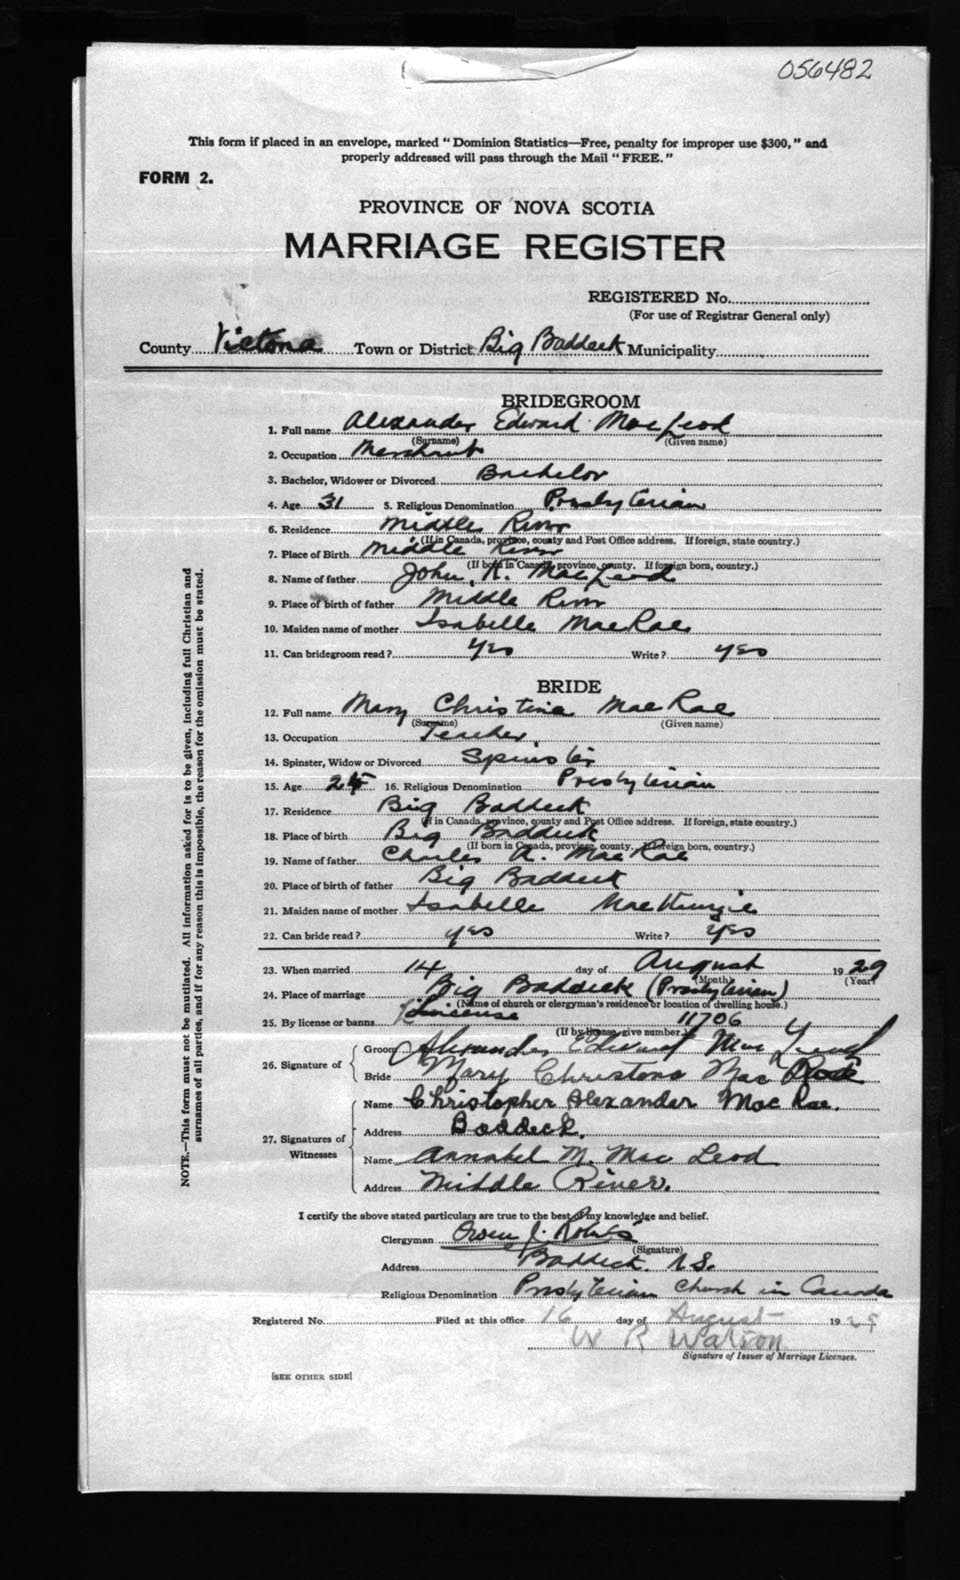 056482
This form if placed in an envelope, marked "Dominion Statistics—Free, penalty for improper use $300," and
properly addressed will pass through the Mail "FREE."
FORM 2.
PROVINCE OF NOVA SCOTIA
MARRIAGE REGISTER
REGISTERED No.
(For use of Registrar General only)
County Victoria Town or District Big Baddeck Municipality
BRIDEGROOM
1. Full name Alexander Edward MacLeod
(Surname) (Given name)
2. Occupation Merchant
3. Bachelor, Widower or Divorced Bachelor
4. Age 31 5. Religious Denomination Presbyterian
6. Residence Middle River
(If in Canada, province, county and Post Office address. If foreign, state country.)
7. Place of Birth Middle River
(If born in Canada, province, county. If foreign born, country.)
8. Name of father John K. MacLeod
9. Place of birth of father Middle River
10. Maiden name of mother Isabelle MacRae
11. Can bridegroom read? yes Write? yes
BRIDE
12. Full name Mary Christina MacRae
(Surname) (Given name)
13. Occupation Teacher
14. Spinster, Widow or Divorced Spinster
15. Age 24 16. Religious Denomination Presbyterian
17. Residence Big Baddeck
(If in Canada, province, county and Post Office address. If foreign, state country.)
18. Place of birth Big Baddeck
(If born in Canada, province, county. If foreign born, country.)
19. Name of father Charles A. MacRae
20. Place of birth of father Big Baddeck
21. Maiden name of mother Isabelle MacKenzie
22. Can bride read? yes Write? yes
23. When married 14 day of August 1929
(Month) (Year)
24. Place of marriage Big Baddeck (Presbyterian)
(Name of church or clergyman's residence or location of dwelling house.)
25. By license or banns License 11706
(If by license, give number.)
26. Signature of
Groom Alexander Edward MacLeod
Bride Mary Christona MacRae
27. Signatures of Witnesses
Name Christopher Alexander MacRae.
Address Baddeck.
Name Annabel M. MacLeod
Address Middle River.
I certify the above stated particulars are true to the best of my knowledge and belief.
Clergyman Owen J. Roberts
(Signature)
Address Baddeck. N.S.
Religious Denomination Presbyterian Church in Canada
Registered No. Filed at this office 16 day of August 1929
W R Watson
Signature of Issuer of Marriage Licenses.
[SEE OTHER SIDE]
NOTE.—This form must not be mutilated. All information asked for is to be given, including full Christian and
surnames of all parties, and if for any reason this is impossible, the reason for the omission must be stated.